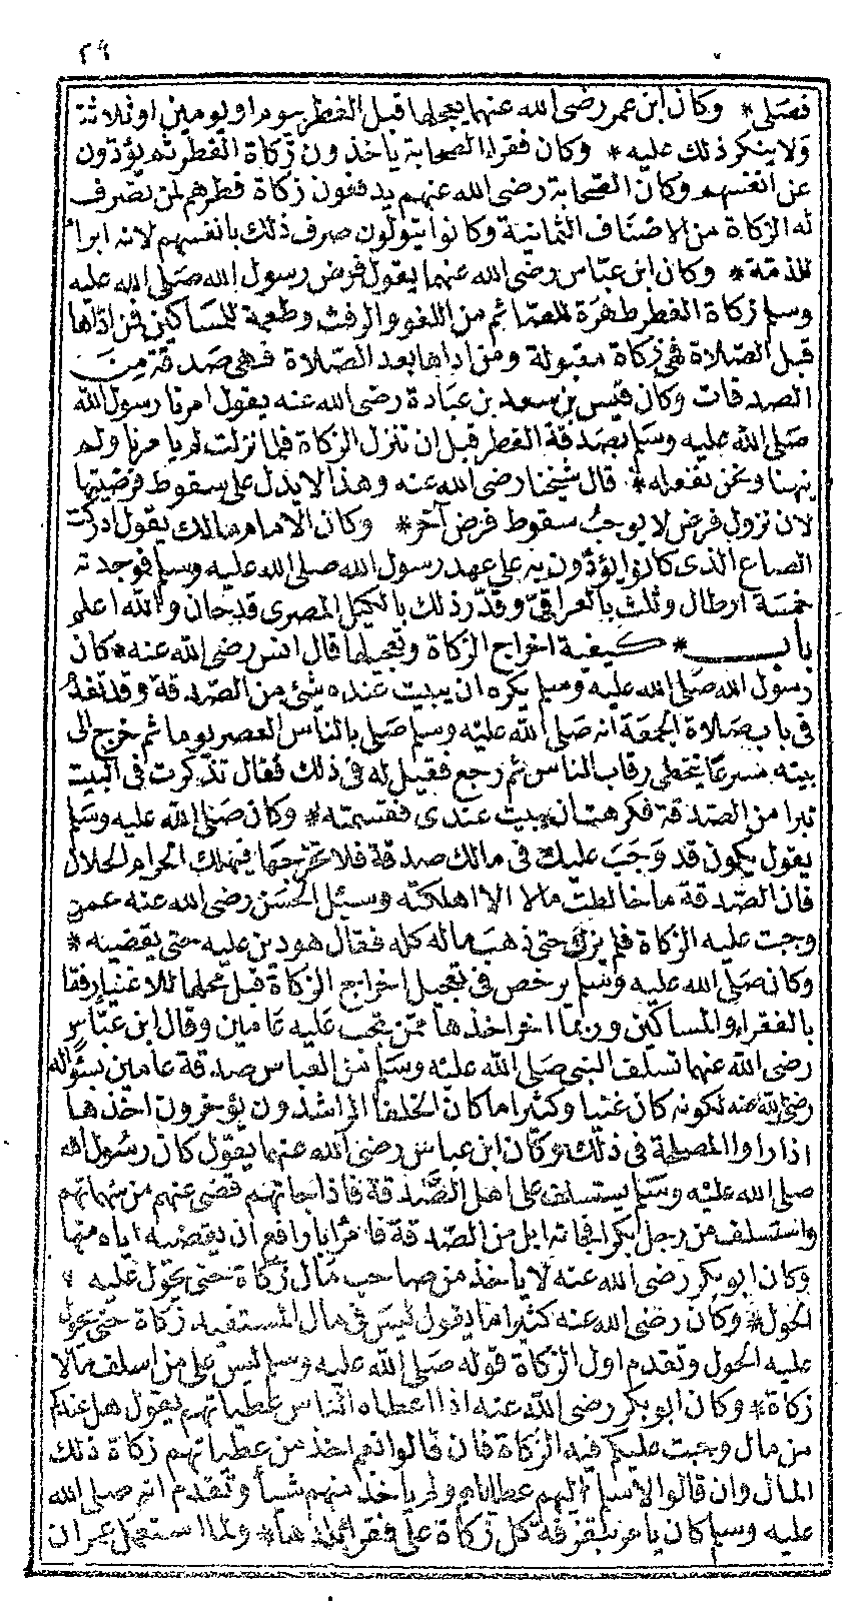 ٢٩
فصلى * وكان ابن عمر رضى الله عنهما يعجلها قبل الفطر بيوم او يومين او ثلاثة
ولا ينكر ذلك عليه * وكان فقراء الصحابة يأخذون زكاة الفطر ثم يؤدون
عن انفسهم وكان الصحابة رضى الله عنهم يدفعون زكاة فطرهم لمن تصرف
له الزكاة من الاصناف الثمانية وكانوا يتولون صرف ذلك بانفسهم لانه ابرأ
للذمة * وكان ابن عباس رضى الله عنهما يقول فرض رسول الله صلى الله عليه
وسلم زكاة الفطر طهرة للصائم من اللغو والرفث وطعمة للمساكين فمن اداها
قبل الصلاة فهى زكاة مقبولة ومن اداها بعد الصلاة فهى صدقة من
الصدقات وكان قيس بن سعد بن عبادة رضى الله عنه يقول امرنا رسول الله
صلى الله عليه وسلم بصدقة الفطر قبل ان تنزل الزكاة فلما نزلت لم يأمرنا ولم
ينهنا ونحن نفعله * قال شيخنا رضى الله عنه وهذا لا يدل على سقوط فرضيتها
لان نزول فرض لا يوجب سقوط فرض آخر * وكان الامام مالك يقول ادركت
الصاع الذى كانوا يؤدون به على عهد رسول الله صلى الله عليه وسلم فوجدته
خمسة ارطال وثلث بالعراقى وقدر ذلك بالكيل المصرى قدحان والله اعلم
باب * كيفية اخراج الزكاة وتعجيلها قال انس رضى الله عنه * كان
رسول الله صلى الله عليه وسلم يكره ان يبيت عنده شئ من الصدقة وقد تقدم
فى باب صلاة الجمعة انه صلى الله عليه وسلم صلى بالناس العصر يوما ثم خرج الى
بيته مسرعا يتخطى رقاب الناس ثم رجع فقيل له فى ذلك فقال تذكرت فى البيت
تبرا من الصدقة فكرهت ان يبيت عندى فقسمته * وكان صلى الله عليه وسلم
يقول يكون قد وجب عليك فى مالك صدقة فلا تخرجها فيهلك الحرام الحلال
فان الصدقة ما خالطت مالا الا اهلكته وسئل الحسن رضى الله عنه عمن
وجبت عليه الزكاة فلم يزك حتى ذهب ماله كله فقال هو دين عليه حتى يقضيه *
وكان صلى الله عليه وسلم يرخص فى تعجيل اخراج الزكاة قبل محلها للاغنياء رفقا
بالفقراء والمساكين وربما اخر اخذها ممن تجب عليه عامين وقال ابن عباس
رضى الله عنهما تسلف النبى صلى الله عليه وسلم من العباس صدقة عامين بسؤاله
رضى الله عنه لكونه كان غنيا وكثيرا ما كان الخلفا الراشدون يؤخرون اخذها
اذا راوا المصلحة فى ذلك وكان ابن عباس رضى الله عنهما يقول كان رسول الله
صلى الله عليه وسلم يستسلف على اهل الصدقة فاذا جاتهم قضى عنهم من سهماتهم
واستسلف من رجل بكرا فجاته ابل من الصدقة فامر ابا رافع ان يقضيه اياه منها
وكان ابو بكر رضى الله عنه لا يأخذ من صاحب مال زكاة حتى يحول عليه
الحول * وكان رضى الله عنه كثيرا ما يقول ليس فى مال المستفيد زكاة حتى يحول
عليه الحول وتقدم اول الزكاة قوله صلى الله عليه وسلم ليس على من اسلف مالا
زكاة * وكان ابو بكر رضى الله عنه اذا اعطاه الناس عطياتهم يقول هل عندكم
من مال وجبت عليكم فيه الزكاة فان قالوا نعم اخذ من عطياتهم زكاة ذلك
المال وان قالوا لا سلم اليهم عطاياهم ولم يأخذ منهم شيأ وتقدم انه صلى الله
عليه وسلم كان يامر بتفرقة كل زكاة على فقراء بلدها * ولما استعمل عمران